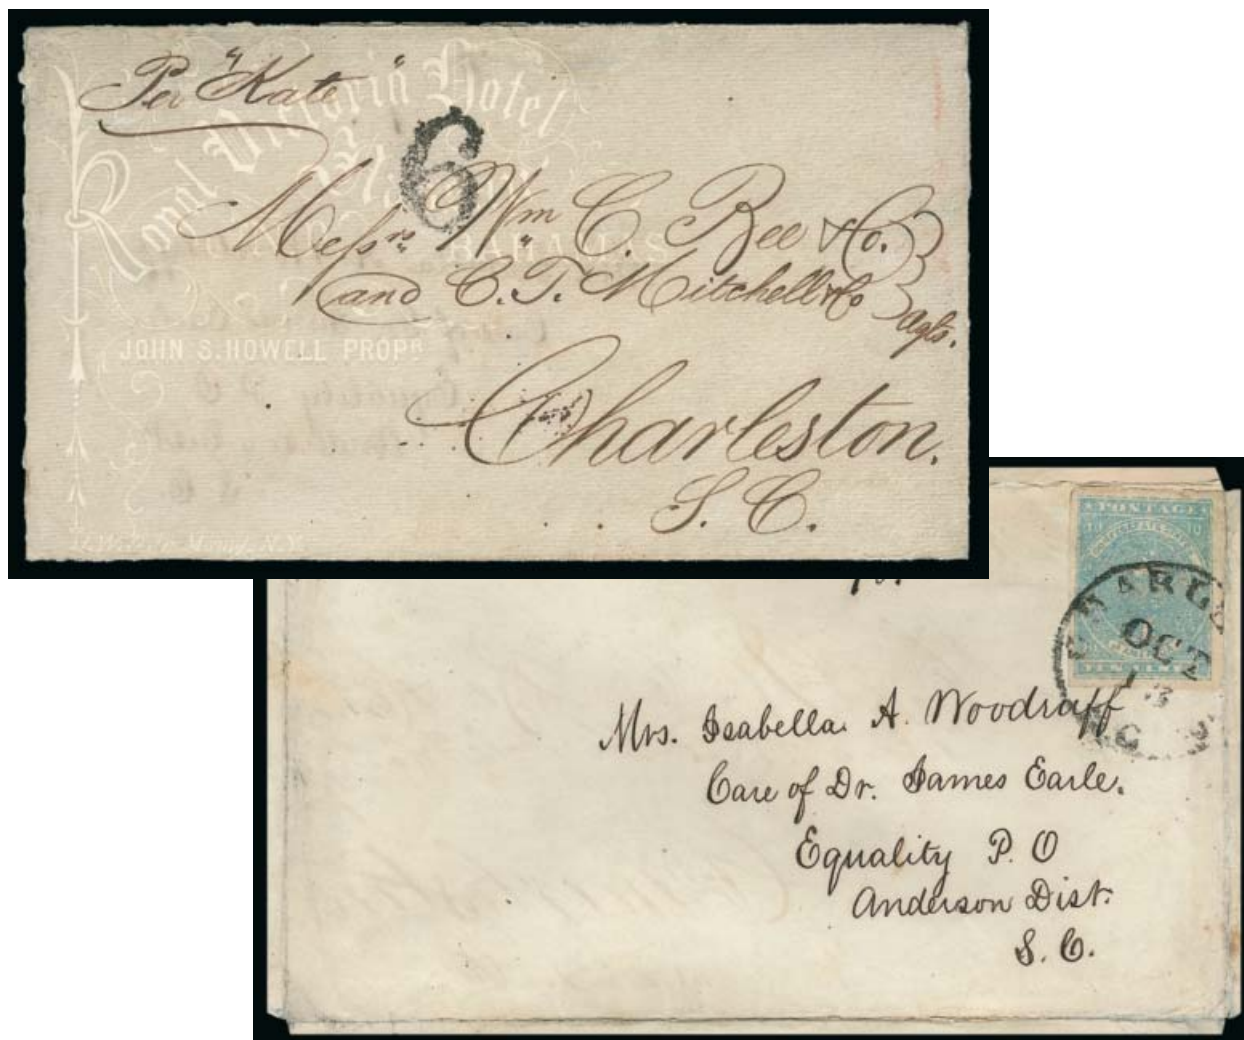 Per "Kate"
Royal Victoria Hotel
Nassau
BAHAMAS
6
Messrs Wm C. Bee & Co.
and C. T. Mitchell & Co
agts.
JOHN S. HOWELL PROPR
Charleston.
S. C.
POSTAGE
10 10
TEN CENTS
OCT
Mrs. Isabella A. Woodruff
Care of Dr. James Earle.
Equality P. O
Anderson Dist.
S. C.